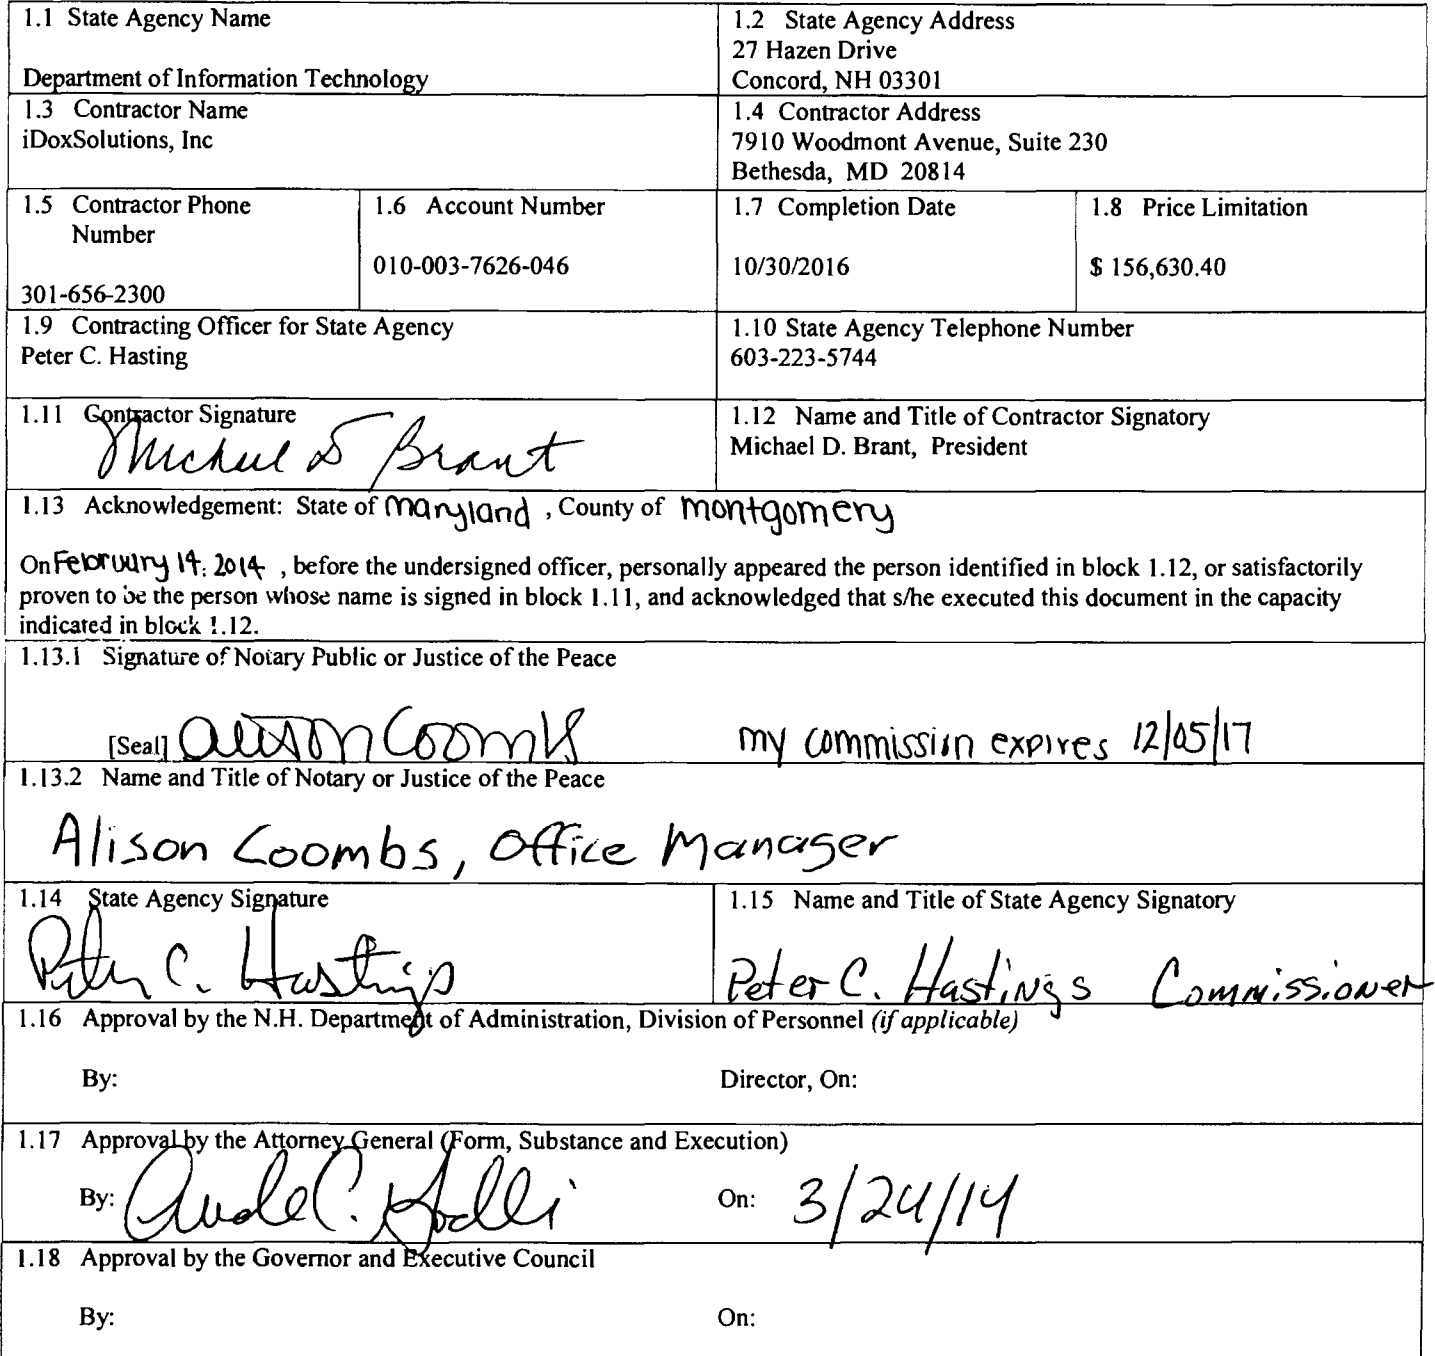 1.1 State Agency Name
Department of Information Technology
1.2 State Agency Address
27 Hazen Drive
Concord, NH 03301
1.3 Contractor Name
iDoxSolutions, Inc
1.4 Contractor Address
7910 Woodmont Avenue, Suite 230
Bethesda, MD 20814
1.5 Contractor Phone
Number
301-656-2300
1.6 Account Number
010-003-7626-046
1.7 Completion Date
10/30/2016
1.8 Price Limitation
$ 156,630.40
1.9 Contracting Officer for State Agency
Peter C. Hasting
1.10 State Agency Telephone Number
603-223-5744
1.11 Contractor Signature
Michael D Brant
1.12 Name and Title of Contractor Signatory
Michael D. Brant, President
1.13 Acknowledgement: State of Maryland , County of Montgomery
On February 14, 2014 , before the undersigned officer, personally appeared the person identified in block 1.12, or satisfactorily
proven to be the person whose name is signed in block 1.11, and acknowledged that s/he executed this document in the capacity
indicated in block 1.12.
1.13.1 Signature of Notary Public or Justice of the Peace
[Seal] Alison Coombs my commission expires 12/05/17
1.13.2 Name and Title of Notary or Justice of the Peace
Alison Coombs, Office Manager
1.14 State Agency Signature
Peter C. Hastings
1.15 Name and Title of State Agency Signatory
Peter C. Hastings Commissioner
1.16 Approval by the N.H. Department of Administration, Division of Personnel (if applicable)
By: Director, On:
1.17 Approval by the Attorney General (Form, Substance and Execution)
By: On: 3/24/14
1.18 Approval by the Governor and Executive Council
By: On: